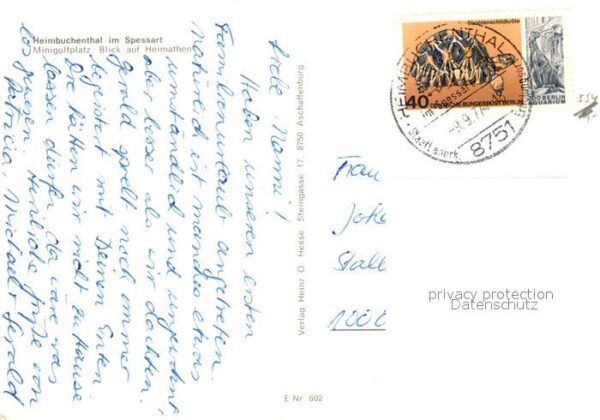 Heimbuchenthal im Spessart
Minigolfplatz, Blick auf Heimathen
Liebe Mami!
Haben unseren ersten
Familienurlaub angetreten.
Natürlich ist manches etwas
umständlich und ungewohnt
aber besser als wir dachten.
Gerald spielt noch immer
begeistert mit Deinen Enten
Die hätten wir nicht zu Hause
lassen dürfen, da wäre was
los gewesen. Herzliche Grüße von
Patricia, Michael + Gerald
Verlag Heinz O. Hesse, Steingasse 17, 8750 Aschaffenburg
E Nr. 602
Strahlenschildkröte
40
DEUTSCHE BUNDESPOST BERLIN
ZOO BERLIN
AQUARIUM
HEIMBUCHENTHAL
im Spessart
Staatl. anerk.
8751
Frau
Joke
Stall
1000
privacy protection
Datenschutz